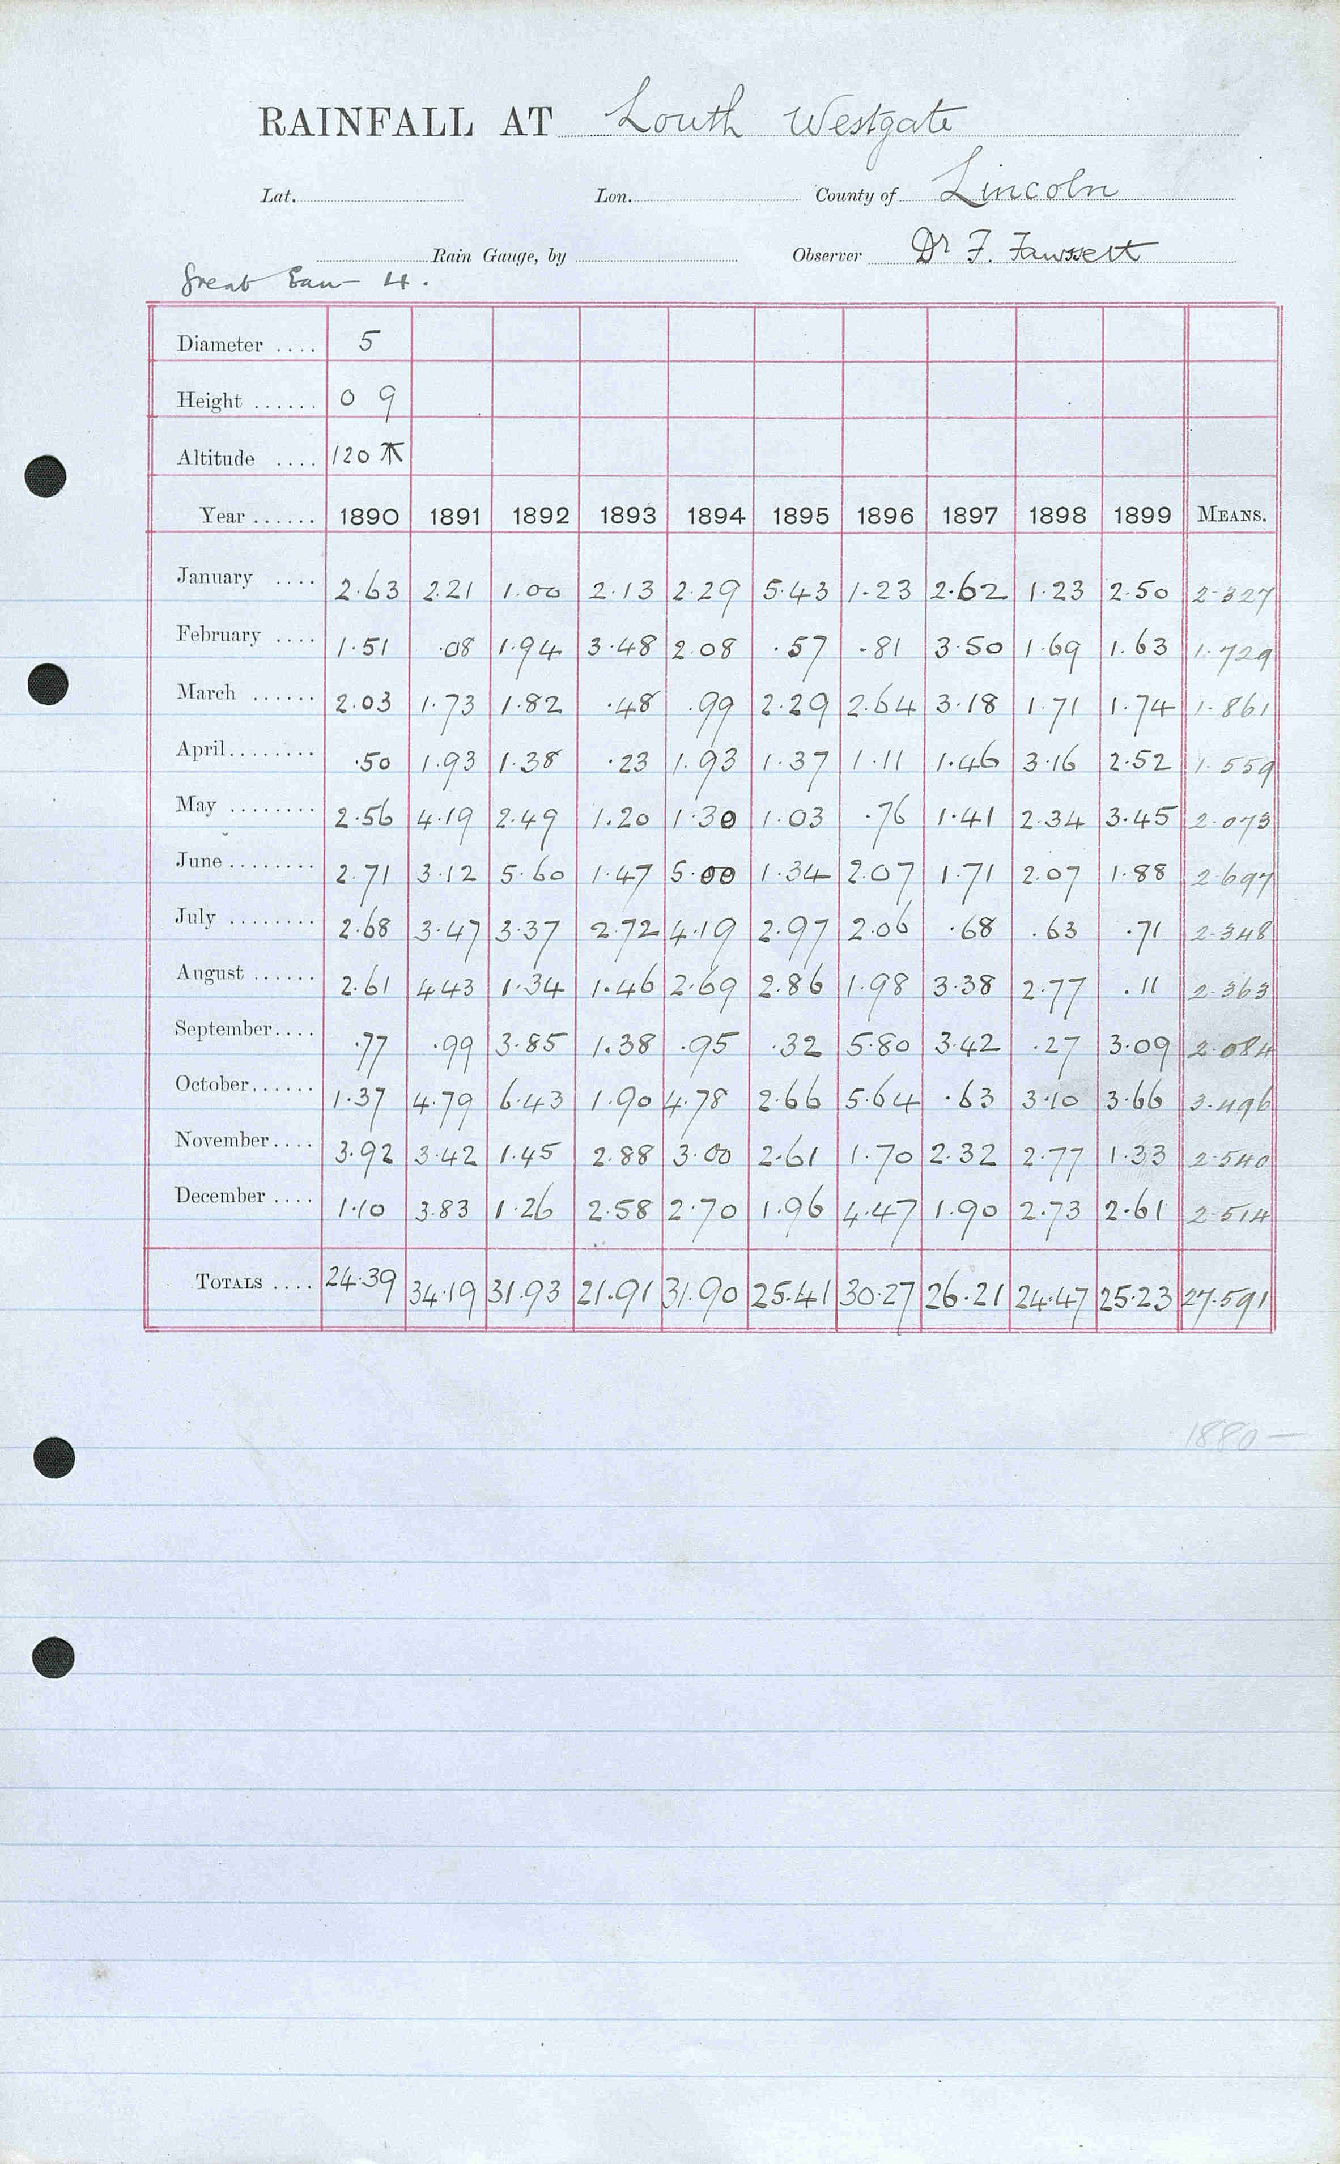 RAINFALL AT Louth Westgate
Lat. Lon. County of Lincoln
Rain Gauge, by Observer Dr F. Fawssett
Great Eau 4.
Diameter .... 5
Height ...... 0 9
Altitude .... 120
Year ...... 1890 1891 1892 1893 1894 1895 1896 1897 1898 1899 MEANS.
January .... 2.63 2.21 1.00 2.13 2.29 5.43 1.23 2.62 1.23 2.50 2.327
February .... 1.51 .08 1.94 3.48 2.08 .57 .81 3.50 1.69 1.63 1.729
March ...... 2.03 1.73 1.82 .48 .99 2.29 2.64 3.18 1.71 1.74 1.861
April........ .50 1.93 1.38 .23 1.93 1.37 1.11 1.46 3.16 2.52 1.559
May ........ 2.56 4.19 2.49 1.20 1.30 1.03 .76 1.41 2.34 3.45 2.073
June ........ 2.71 3.12 5.60 1.47 5.00 1.34 2.07 1.71 2.07 1.88 2.697
July ........ 2.68 3.47 3.37 2.72 4.19 2.97 2.06 .68 .63 .71 2.348
August ...... 2.61 4.43 1.34 1.46 2.69 2.86 1.98 3.38 2.77 .11 2.363
September.... .77 .99 3.85 1.38 .95 .32 5.80 3.42 .27 3.09 2.084
October...... 1.37 4.79 6.43 1.90 4.78 2.66 5.64 .63 3.10 3.66 3.496
November.... 3.92 3.42 1.45 2.88 3.00 2.61 1.70 2.32 2.77 1.33 2.540
December .... 1.10 3.83 1.26 2.58 2.70 1.96 4.47 1.90 2.73 2.61 2.514
TOTALS .... 24.39 34.19 31.93 21.91 31.90 25.41 30.27 26.21 24.47 25.23 27.591
1880 —